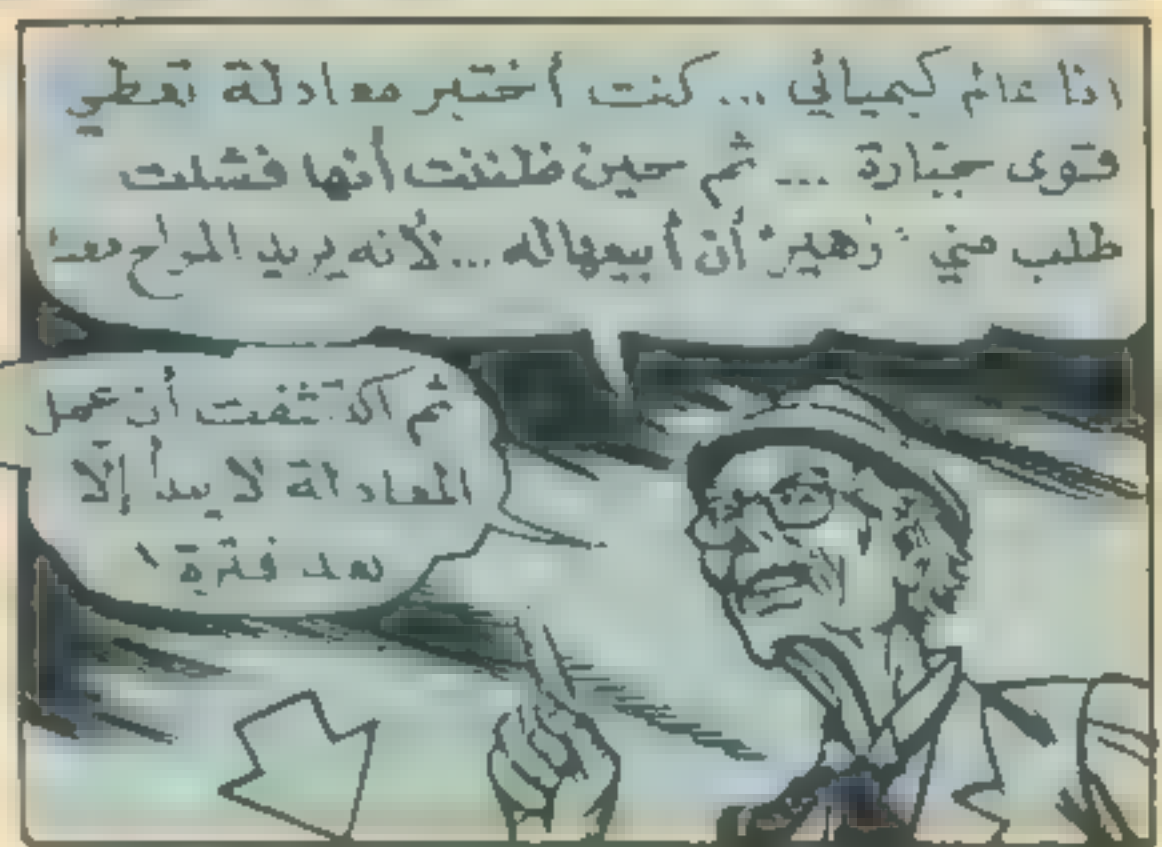 انا عالم كيميائي ... كنت أختبر معادلة تعطي
قوى جبّارة ... ثم حين ظننت أنها فشلت
طلب مني "زهير" أن أبيعها له ... لأنه يريد المزاح معنا
ثم اكتشفت أن عمل
المعادلة لا يبدأ إلّا
بعد فترة !